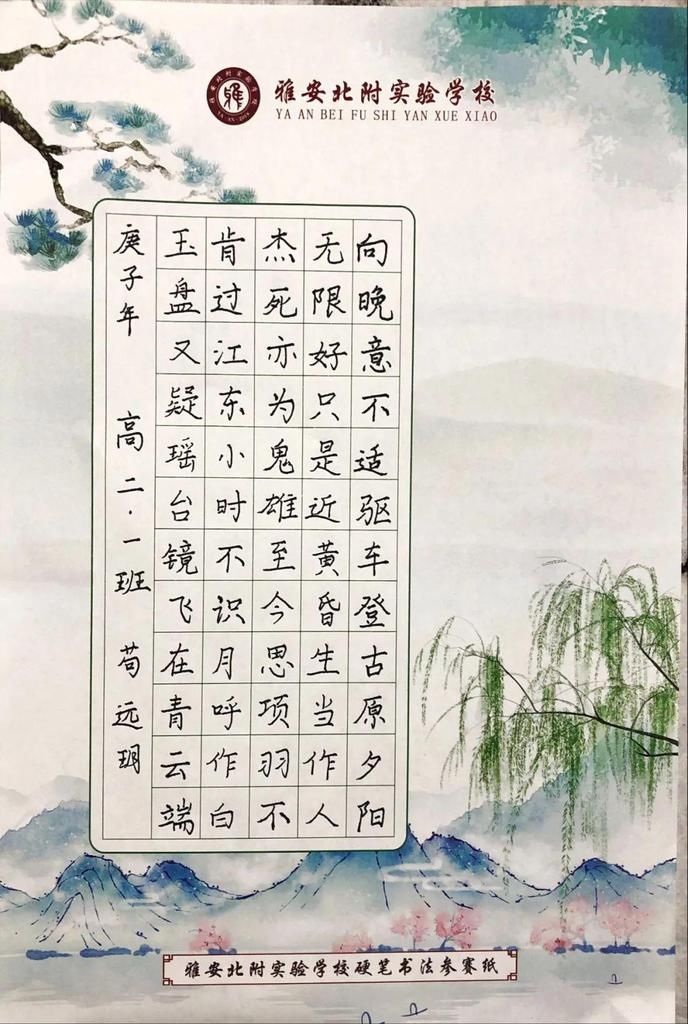 雅安北附实验学校
YA AN BEI FU SHI YAN XUE XIAO
向晚意不适驱车登古原夕阳
无限好只是近黄昏生当作人
杰死亦为鬼雄至今思项羽不
肯过江东小时不识月呼作白
玉盘又疑瑶台镜飞在青云端
庚子年 高二·一班 苟远玥
雅安北附实验学校硬笔书法参赛纸